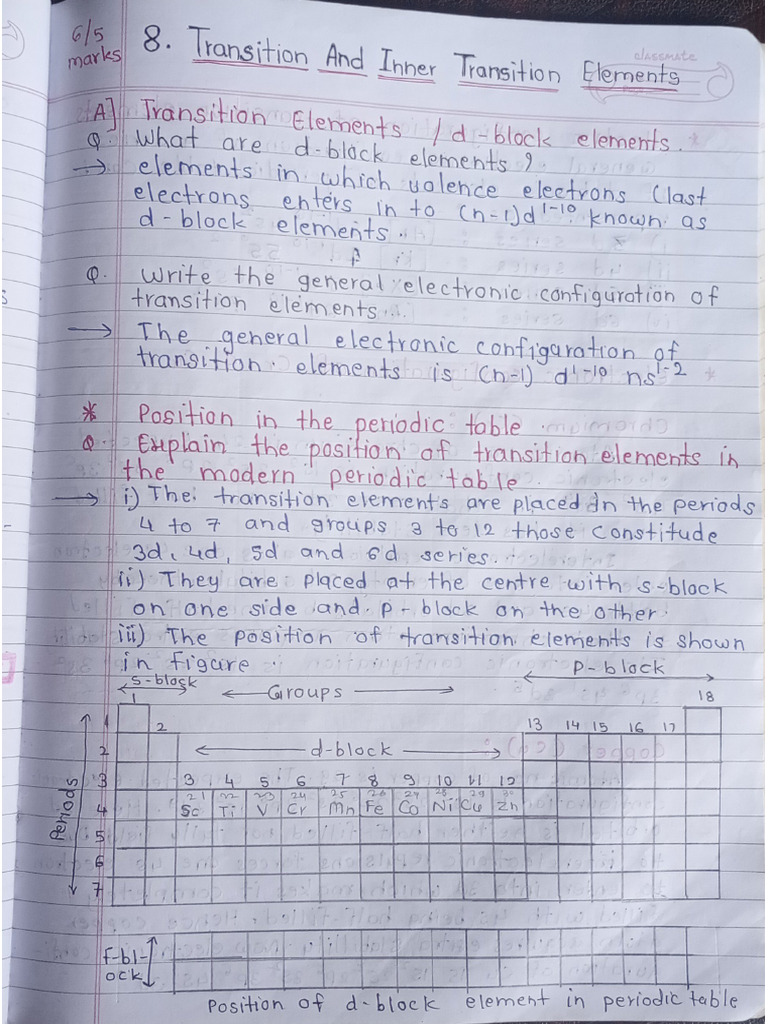 6/5
marks
8. Transition And Inner Transition Elements
classmate
A] Transition Elements / d-block elements.
Q. What are d-block elements?
→ elements in which valence electrons (last
electrons enters in to (n-1)d¹⁻¹⁰ known as
d-block elements.
Q. Write the general electronic configuration of
transition elements.
→ The general electronic configaration of
transition elements is (n-1) d¹⁻¹⁰ ns¹⁻²
* Position in the periodic table
Q. Explain the position of transition elements in
the modern periodic table.
→ i) The transition elements are placed in the periods
4 to 7 and groups 3 to 12 those constitude
3d, 4d, 5d and 6d series.
ii) They are placed at the centre with s-block
on one side and p-block on the other
iii) The position of transition elements is shown
in figure.
s-block ← Groups → p-block
1 18
2 13 14 15 16 17
← d-block →
Periods
1
2
3 3 4 5 6 7 8 9 10 11 12
21 22 23 24 25 26 27 28 29 30
4 Sc Ti V Cr Mn Fe Co Ni Cu Zn
5
6
7
f-bl-
ock
Position of d-block element in periodic table